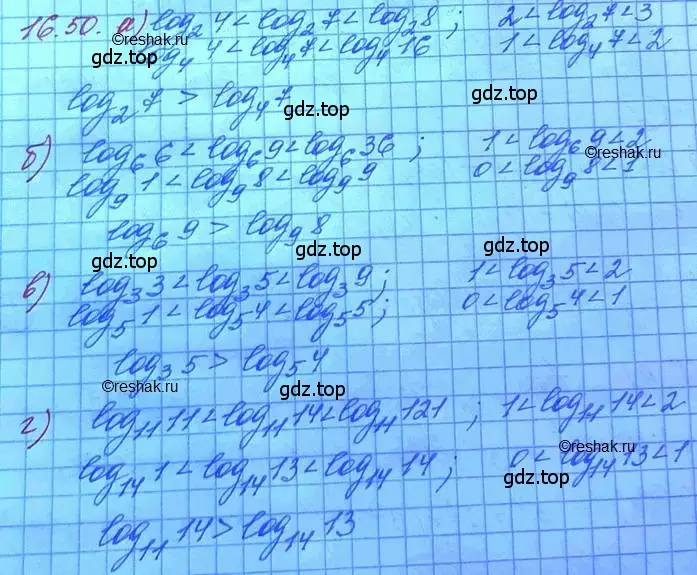 16.50. а) log₂ 4 < log₂ 7 < log₂ 8 ; 2 < log₂ 7 < 3
©reshak.ru
log₄ 4 < log₄ 7 < log₄ 16 1 < log₄ 7 < 2
gdz.top gdz.top gdz.top
log₂ 7 > log₄ 7
gdz.top
б) log₆ 6 < log₆ 9 < log₆ 36 ; 1 < log₆ 9 < 2
©reshak.ru
log₉ 1 < log₉ 8 < log₉ 9 0 < log₉ 8 < 1
gdz.top gdz.top
log₆ 9 > log₉ 8
gdz.top gdz.top gdz.top
в) log₃ 3 < log₃ 5 < log₃ 9 ; 1 < log₃ 5 < 2
log₅ 1 < log₅ 4 < log₅ 5 ; 0 < log₅ 4 < 1
gdz.top gdz.top
log₃ 5 > log₅ 4
©reshak.ru
gdz.top gdz.top gdz.top
г) log₁₁ 11 < log₁₁ 14 < log₁₁ 121 ; 1 < log₁₁ 14 < 2
©reshak.ru
log₁₄ 1 < log₁₄ 13 < log₁₄ 14 ; 0 < log₁₄ 13 < 1
gdz.top gdz.top
log₁₁ 14 > log₁₄ 13
gdz.top gdz.top gdz.top